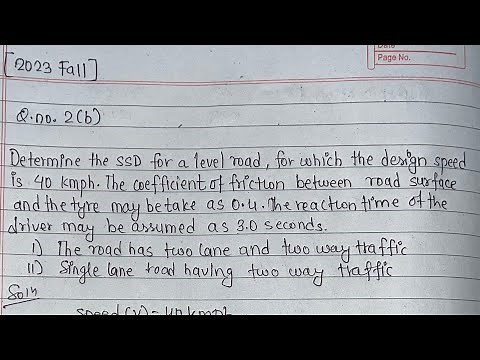 Date
Page No.
[2023 Fall]
Q.no. 2(b)
Determine the SSD for a level road, for which the design speed
is 40 kmph. The coefficient of friction between road surface
and the tyre may be take as 0.4. The reaction time of the
driver may be assumed as 3.0 seconds.
I) The road has two lane and two way traffic
II) Single lane road having two way traffic
Soln
speed (V) = 40 kmph